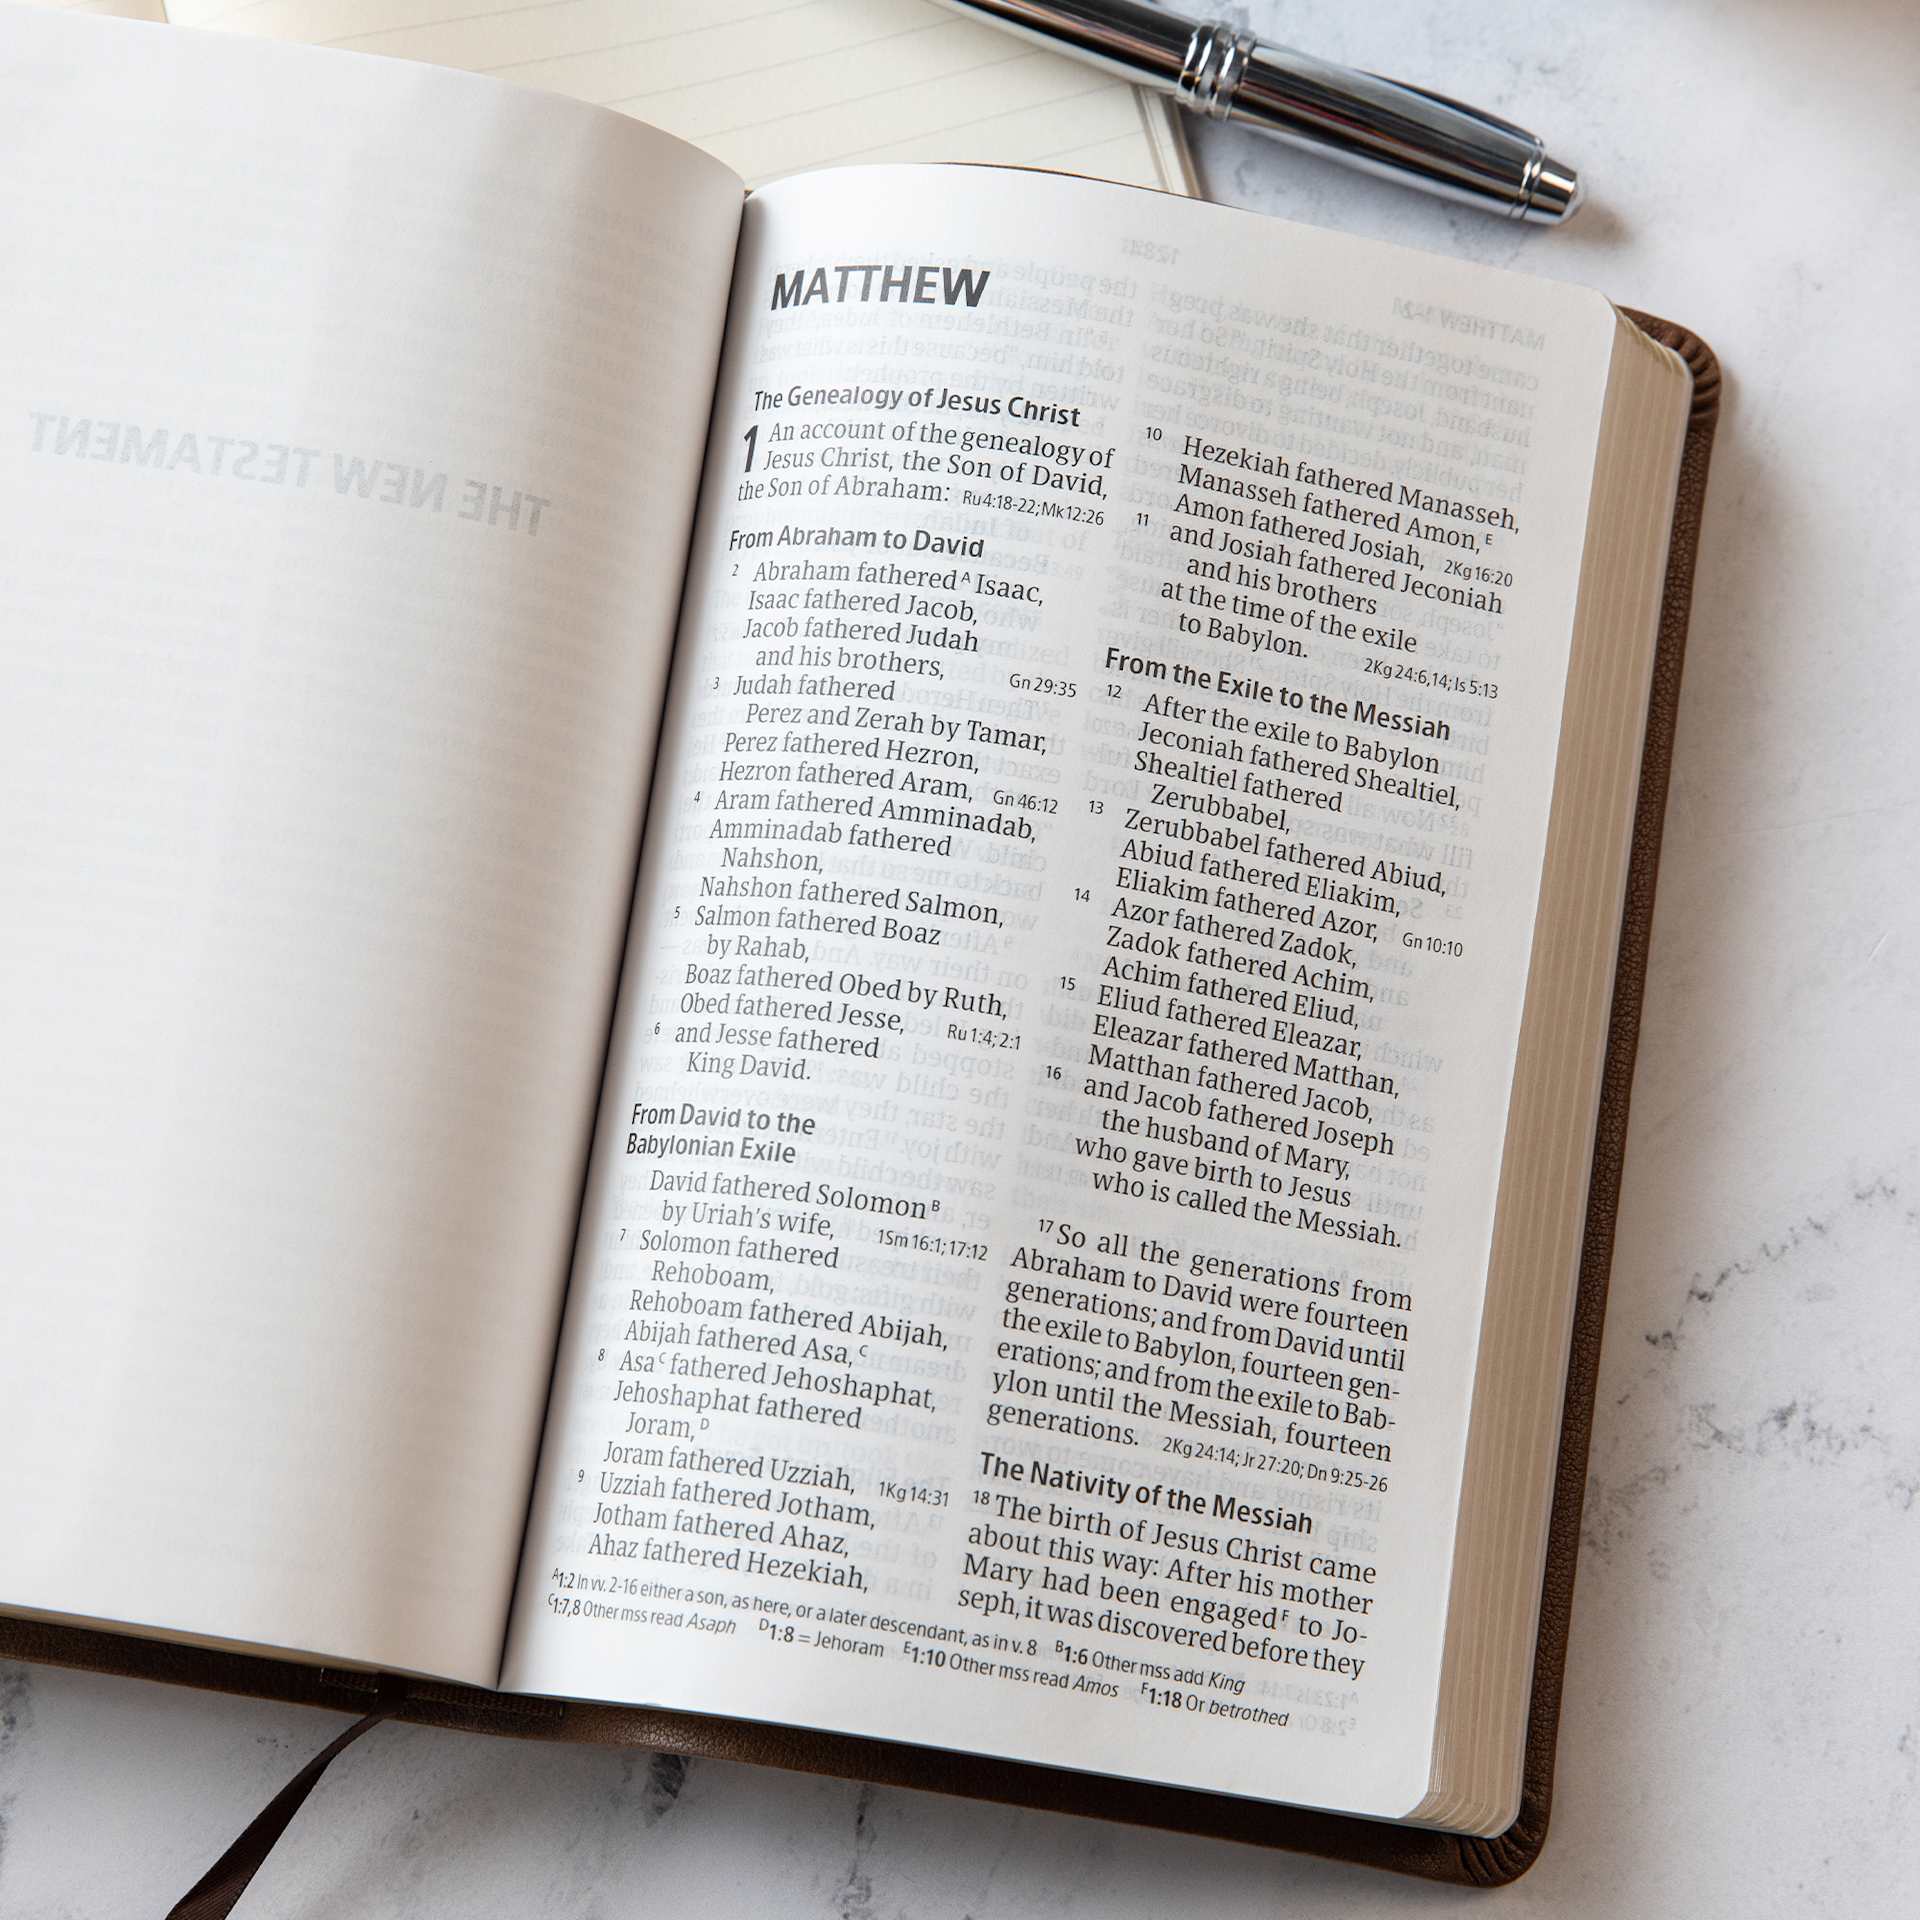 THE NEW TESTAMENT
MATTHEW
The Genealogy of Jesus Christ
1 An account of the genealogy of
Jesus Christ, the Son of David,
the Son of Abraham: Ru 4:18-22; Mk 12:26
From Abraham to David
2 Abraham fathered A Isaac,
Isaac fathered Jacob,
Jacob fathered Judah
and his brothers, Gn 29:35
3 Judah fathered
Perez and Zerah by Tamar,
Perez fathered Hezron,
Hezron fathered Aram, Gn 46:12
4 Aram fathered Amminadab,
Amminadab fathered
Nahshon,
Nahshon fathered Salmon,
5 Salmon fathered Boaz
by Rahab,
Boaz fathered Obed by Ruth,
Obed fathered Jesse, Ru 1:4; 2:1
6 and Jesse fathered
King David.
From David to the
Babylonian Exile
David fathered Solomon B
by Uriah's wife, 1Sm 16:1; 17:12
7 Solomon fathered
Rehoboam,
Rehoboam fathered Abijah,
Abijah fathered Asa, C
8 Asa C fathered Jehoshaphat,
Jehoshaphat fathered
Joram, D
Joram fathered Uzziah, 1Kg 14:31
9 Uzziah fathered Jotham,
Jotham fathered Ahaz,
Ahaz fathered Hezekiah,
10 Hezekiah fathered Manasseh,
Manasseh fathered Amon, E
Amon fathered Josiah, 2Kg 16:20
11 and Josiah fathered Jeconiah
and his brothers
at the time of the exile
to Babylon. 2Kg 24:6,14; Is 5:13
From the Exile to the Messiah
12 After the exile to Babylon
Jeconiah fathered Shealtiel,
Shealtiel fathered
Zerubbabel,
13 Zerubbabel fathered Abiud,
Abiud fathered Eliakim,
Eliakim fathered Azor, Gn 10:10
14 Azor fathered Zadok,
Zadok fathered Achim,
Achim fathered Eliud,
15 Eliud fathered Eleazar,
Eleazar fathered Matthan,
Matthan fathered Jacob,
16 and Jacob fathered Joseph
the husband of Mary,
who gave birth to Jesus
who is called the Messiah.
17 So all the generations from
Abraham to David were fourteen
generations; and from David until
the exile to Babylon, fourteen gen-
erations; and from the exile to Bab-
ylon until the Messiah, fourteen
generations. 2Kg 24:14; Jr 27:20; Dn 9:25-26
The Nativity of the Messiah
18 The birth of Jesus Christ came
about this way: After his mother
Mary had been engaged F to Jo-
seph, it was discovered before they
A1:2 In vv. 2-16 either a son, as here, or a later descendant, as in v. 8 B1:6 Other mss add King
C1:7,8 Other mss read Asaph D1:8 = Jehoram E1:10 Other mss read Amos F1:18 Or betrothed